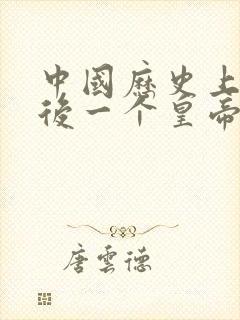 中國歷史上
後一个皇帝
唐雲德